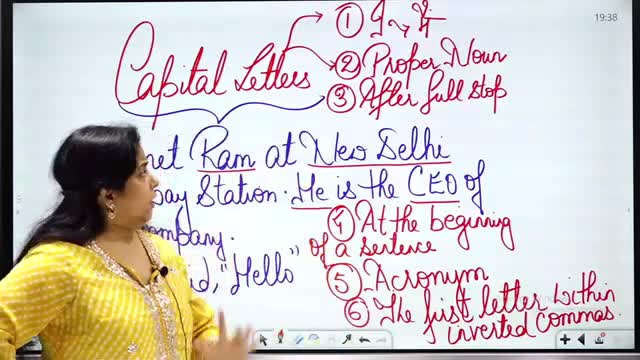 19:38
Capital Letters
① I → मैं
② Proper Noun
③ After full stop
met Ram at New Delhi
way Station. He is the CEO of
company.
④ At the beginning
of a sentence
id, "Hello"
⑤ Acronym
⑥ The first letter within
inverted commas.